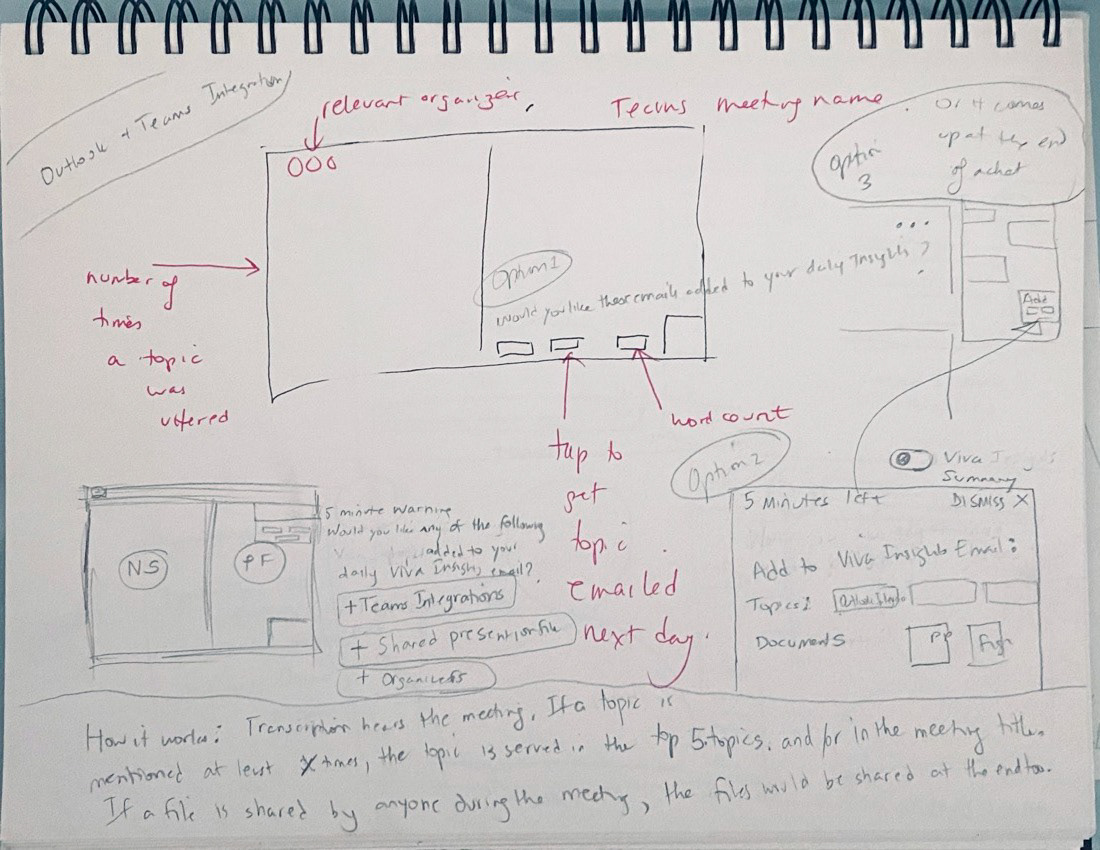 Outlook + Teams Integration
relevant organizer.
Teams meeting name.
Option 3
Or it comes
up at the end
of a chat
number of
times
a topic
was
uttered
Option 1
Would you like these emails added to your daily Insights?
Add
tap to
get
topic
emailed
next day.
word count
Option 2
Viva Insights
Summary
NS
PF
5 minute warning
Would you like any of the following
added to your
daily Viva Insights email?
+ Teams Integrations
+ Shared presention file
+ Organizers
5 Minutes left
DISMISS X
Add to Viva Insights Email:
Topics:
Documents
PP
How it works: Transcription hears the meeting. If a topic is
mentioned at least X times, the topic is served in the top 5 topics. and/or in the meeting title.
If a file is shared by anyone during the meeting, the files would be shared at the end too.